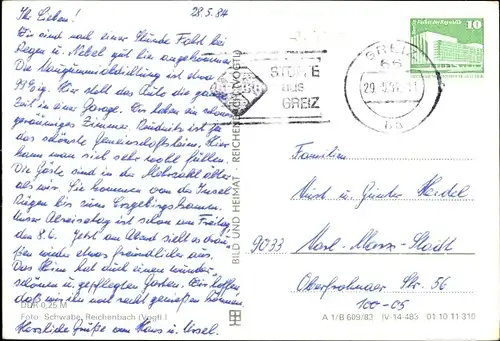 28.5.84
Ihr Lieben!
Wir sind nach einer Stunde Fahrt bei
Regen u. Nebel gut hier angekommen.
Die Neugummibildung ist etwa
Hier steht das Auto die ganze
Zeit in einer Garage. Wir haben ein schönes
geräumiges Zimmer. Rudnitz ist ja
das schönste Hier
kann man sich sehr wohl fühlen.
Die Gäste sind in der Mehrzahl älter
als wir. Sie kommen von der Insel
Rügen bis zum Erzgebirgskamm.
Unser Abreisetag ist schon am Freitag,
den 8.6. Jetzt am Abend sieht es drau-
ßen wieder etwas freundlicher aus.
Das Heim hat auch einen wunder-
schönen u. gepflegten Garten. Wir hoffen
daß wir ihn noch recht genießen können.
Herzliche Grüße von Hans u. Ursel.
DDR 0,25 M
Foto: Schwabe, Reichenbach (Vogtl.)
BILD UND HEIMAT · REICHENBACH (VOGTL)
STOFFE
aus
GREIZ
GREIZ
66
29.5.84
ba
Palast der Republik
10
Familien
u. Günter
9033 Karl-Marx-Stadt
Oberfrohnaer Str. 56
100-05
A 1/B 609/83 IV-14-483 01 10 11 310